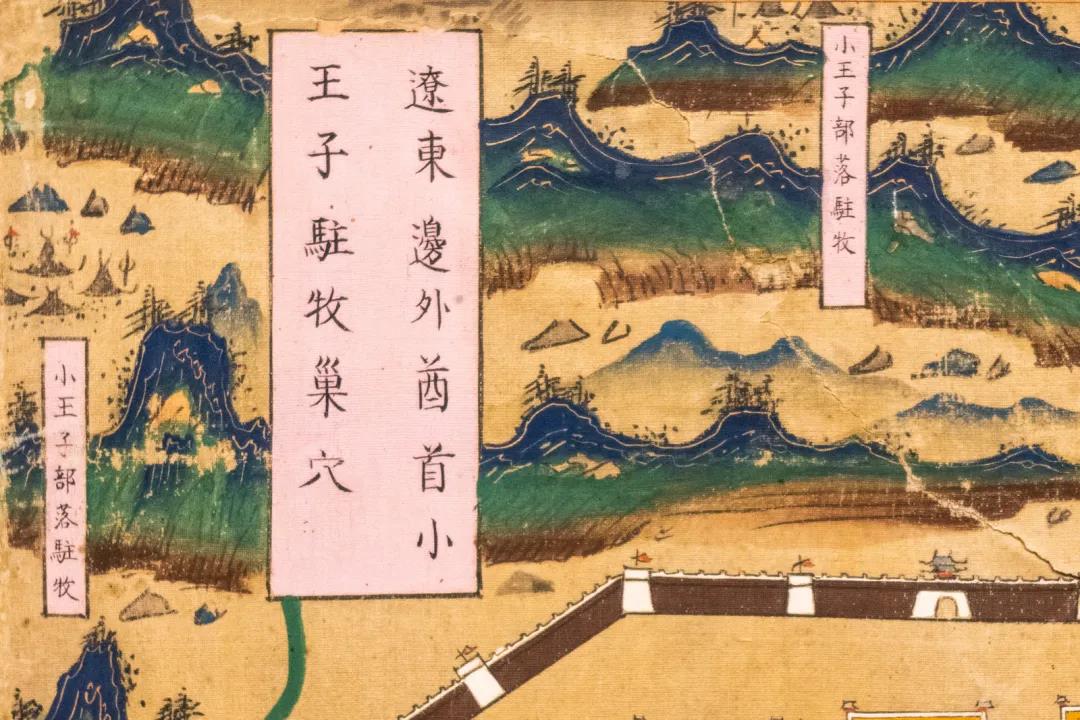 遼東邊外酋首小
王子駐牧巢穴
小王子部落駐牧
小王子部落駐牧